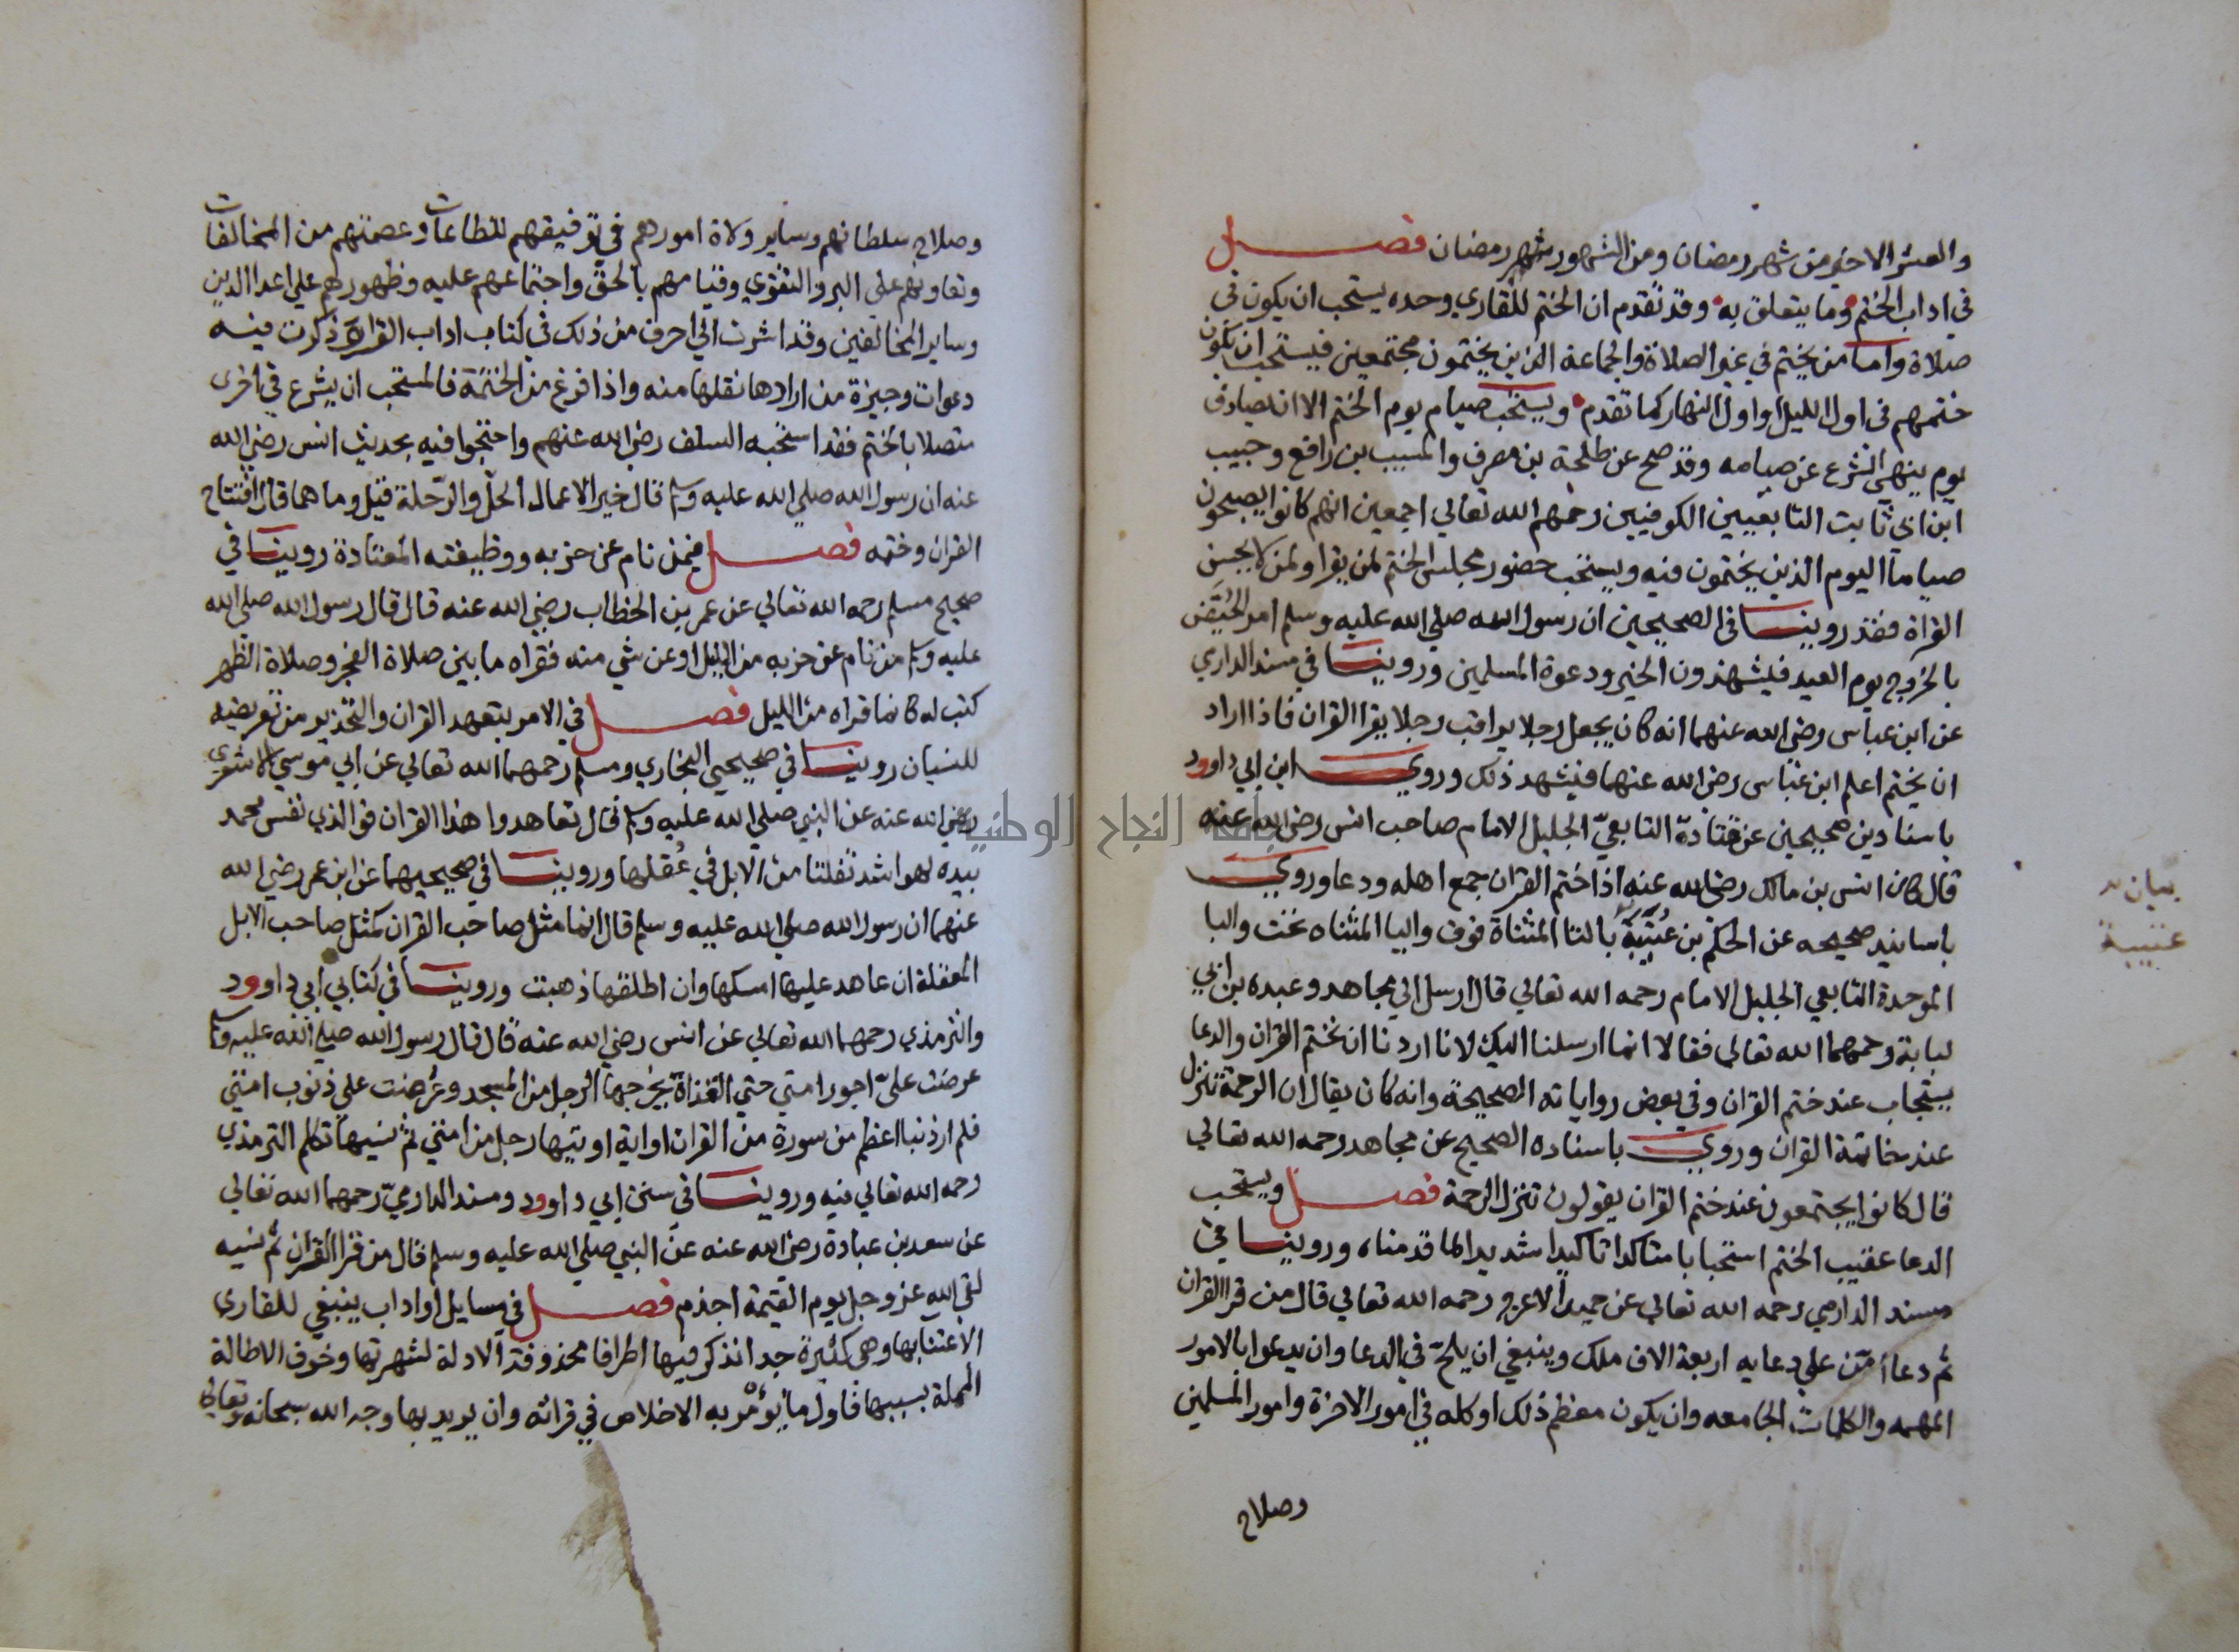 والعشر الاخير من شهر رمضان ومن الشهور شهر رمضان فصل
في اداب الختم وما يتعلق به وقد تقدم ان الختم للقاري وحده يستحب ان يكون في
صلاة واما من يختم في غير الصلاة والجماعة الذين يختمون مجتمعين فيستحب ان يكون
ختمهم في اول الليل او اول النهار كما تقدم ويستحب صيام يوم الختم الا ان يصادف
يوم ينهي الشرع عن صيامه وقد صح عن طلحة بن مصرف والمسيب بن رافع وحبيب
ابن ابي ثابت التابعيين الكوفيين رحمهم الله تعالي اجمعين انهم كانوا يصبحون
صياما اليوم الذين يختمون فيه ويستحب حضور مجلس الختم لمن يقرا ولمن لا يحسن
القراة فقد روينا في الصحيحين ان رسول الله صلي الله عليه وسلم امر الحيض
بالخروج يوم العيد فيشهدون الخير ودعوة المسلمين وروينا في مسند الداري
عن ابن عباس رضي الله عنهما انه كان يجعل رجلا يراقب رجلا يقرا القران فاذا اراد
ان يختم اعلم ابن عباس رضي الله عنهما فيشهد ذلك وروي ابن ابي داوود
باسنادين صحيحين عن قتادة التابعي الجليل الامام صاحب انس رضي الله عنه
قال كان انس بن مالك رضي الله عنه اذا ختم القران جمع اهله ودعا وروي
باسانيد صحيحه عن الحكم بن عتيبة بالتا المثناة فوق واليا المثناه تحت والبا
الموحدة التابعي الجليل الامام رحمه الله تعالي قال ارسل الي مجاهد وعبده بن ابي
لبابة رحمهما الله تعالي فقالا انما ارسلنا اليك لانا اردنا ان نختم القران والدعا
يستجاب عند ختم القران وفي بعض رواياته الصحيحة وانه كان يقال ان الرحمة تنزل
عند خاتمة القران وروي باسناده الصحيح عن مجاهد رحمه الله تعالي
قال كانوا يجتمعون عند ختم القران يقولون تنزل الرحمة فصل ويستحب
الدعا عقيب الختم استحبابا متاكدا تاكيدا شديدا لما قدمناه وروينا في
مسند الدارمي رحمه الله تعالي عن حميد الاعرج رحمه الله تعالي قال من قرا القران
ثم دعا امن علي دعايه اربعة الاف ملك وينبغي ان يلح في الدعا وان يدعوا بالامور
المهمه والكلمات الجامعه وان يكون معظم ذلك او كله في امور الاخرة وامور المسلمين
وصلاح
بيان
عتيبة
وصلاح سلطانهم وساير ولاة امورهم في توفيقهم للطاعات وعصمتهم من المخالفات
وتعاونهم علي البر والتقوي وقيامهم بالحق واجتماعهم عليه وظهورهم علي اعدا الدين
وساير المخالفين وقد اشرت الي احرف من ذلك في كتاب اداب القراة وذكرت فيه
دعوات وجيزة من ارادها نقلها منه واذا فرغ من الختمة فالمستحب ان يشرع في اخري
متصلا بالختم فقد استحبه السلف رضي الله عنهم واحتجوا فيه بحديث انس رضي الله
عنه ان رسول الله صلي الله عليه وسلم قال خير الاعمال الحل والرحلة قيل وما هما قال افتتاح
القران وختمه فصل فيمن نام عن حزبه ووظيفته المعتادة روينا في
صحيح مسلم رحمه الله تعالي عن عمر بن الخطاب رضي الله عنه قال قال رسول الله صلي الله
عليه وسلم من نام عن حزبه من الليل او عن شي منه فقراه ما بين صلاة الفجر وصلاة الظهر
كتب له كانما قراه من الليل فصل في الامر بتعهد القران والتحذير من تعريضه
للنسيان روينا في صحيحي البخاري ومسلم رحمهما الله تعالي عن ابي موسي الاشعري
رضي الله عنه عن النبي صلي الله عليه وسلم قال تعاهدوا هذا القران فوالذي نفس محمد
بيده لهو اشد تفلتا من الابل في عقلها وروينا في صحيحيهما عن ابن عمر رضي الله
عنهما ان رسول الله صلي الله عليه وسلم قال انما مثل صاحب القران كمثل صاحب الابل
المعقلة ان عاهد عليها امسكها وان اطلقها ذهبت وروينا في كتابي ابي داوود
والترمذي رحمهما الله تعالي عن انس رضي الله عنه قال قال رسول الله صلي الله عليه وسلم
عرضت علي اجور امتي حتي القذاة يخرجها الرجل من المسجد وعرضت علي ذنوب امتي
فلم ار ذنبا اعظم من سورة من القران او اية اوتيها رجل من امتي ثم نسيها تكلم الترمذي
رحمه الله تعالي فيه وروينا في سنن ابي داوود ومسند الدارمي رحمهما الله تعالي
عن سعد بن عبادة رضي الله عنه عن النبي صلي الله عليه وسلم قال من قرا القران ثم نسيه
لقي الله عز وجل يوم القيمة اجذم فصل في مسايل اواداب ينبغي للقاري
الاعتنا بها وهي كثيرة جدا نذكر فيها اطرافا محذوفة الادلة لشهرتها وخوف الاطالة
المملة بسببها فاول ما يؤمر به الاخلاص في قراته وان يريد بها وجه الله سبحانه وتعالي
جامعة النجاح الوطنية